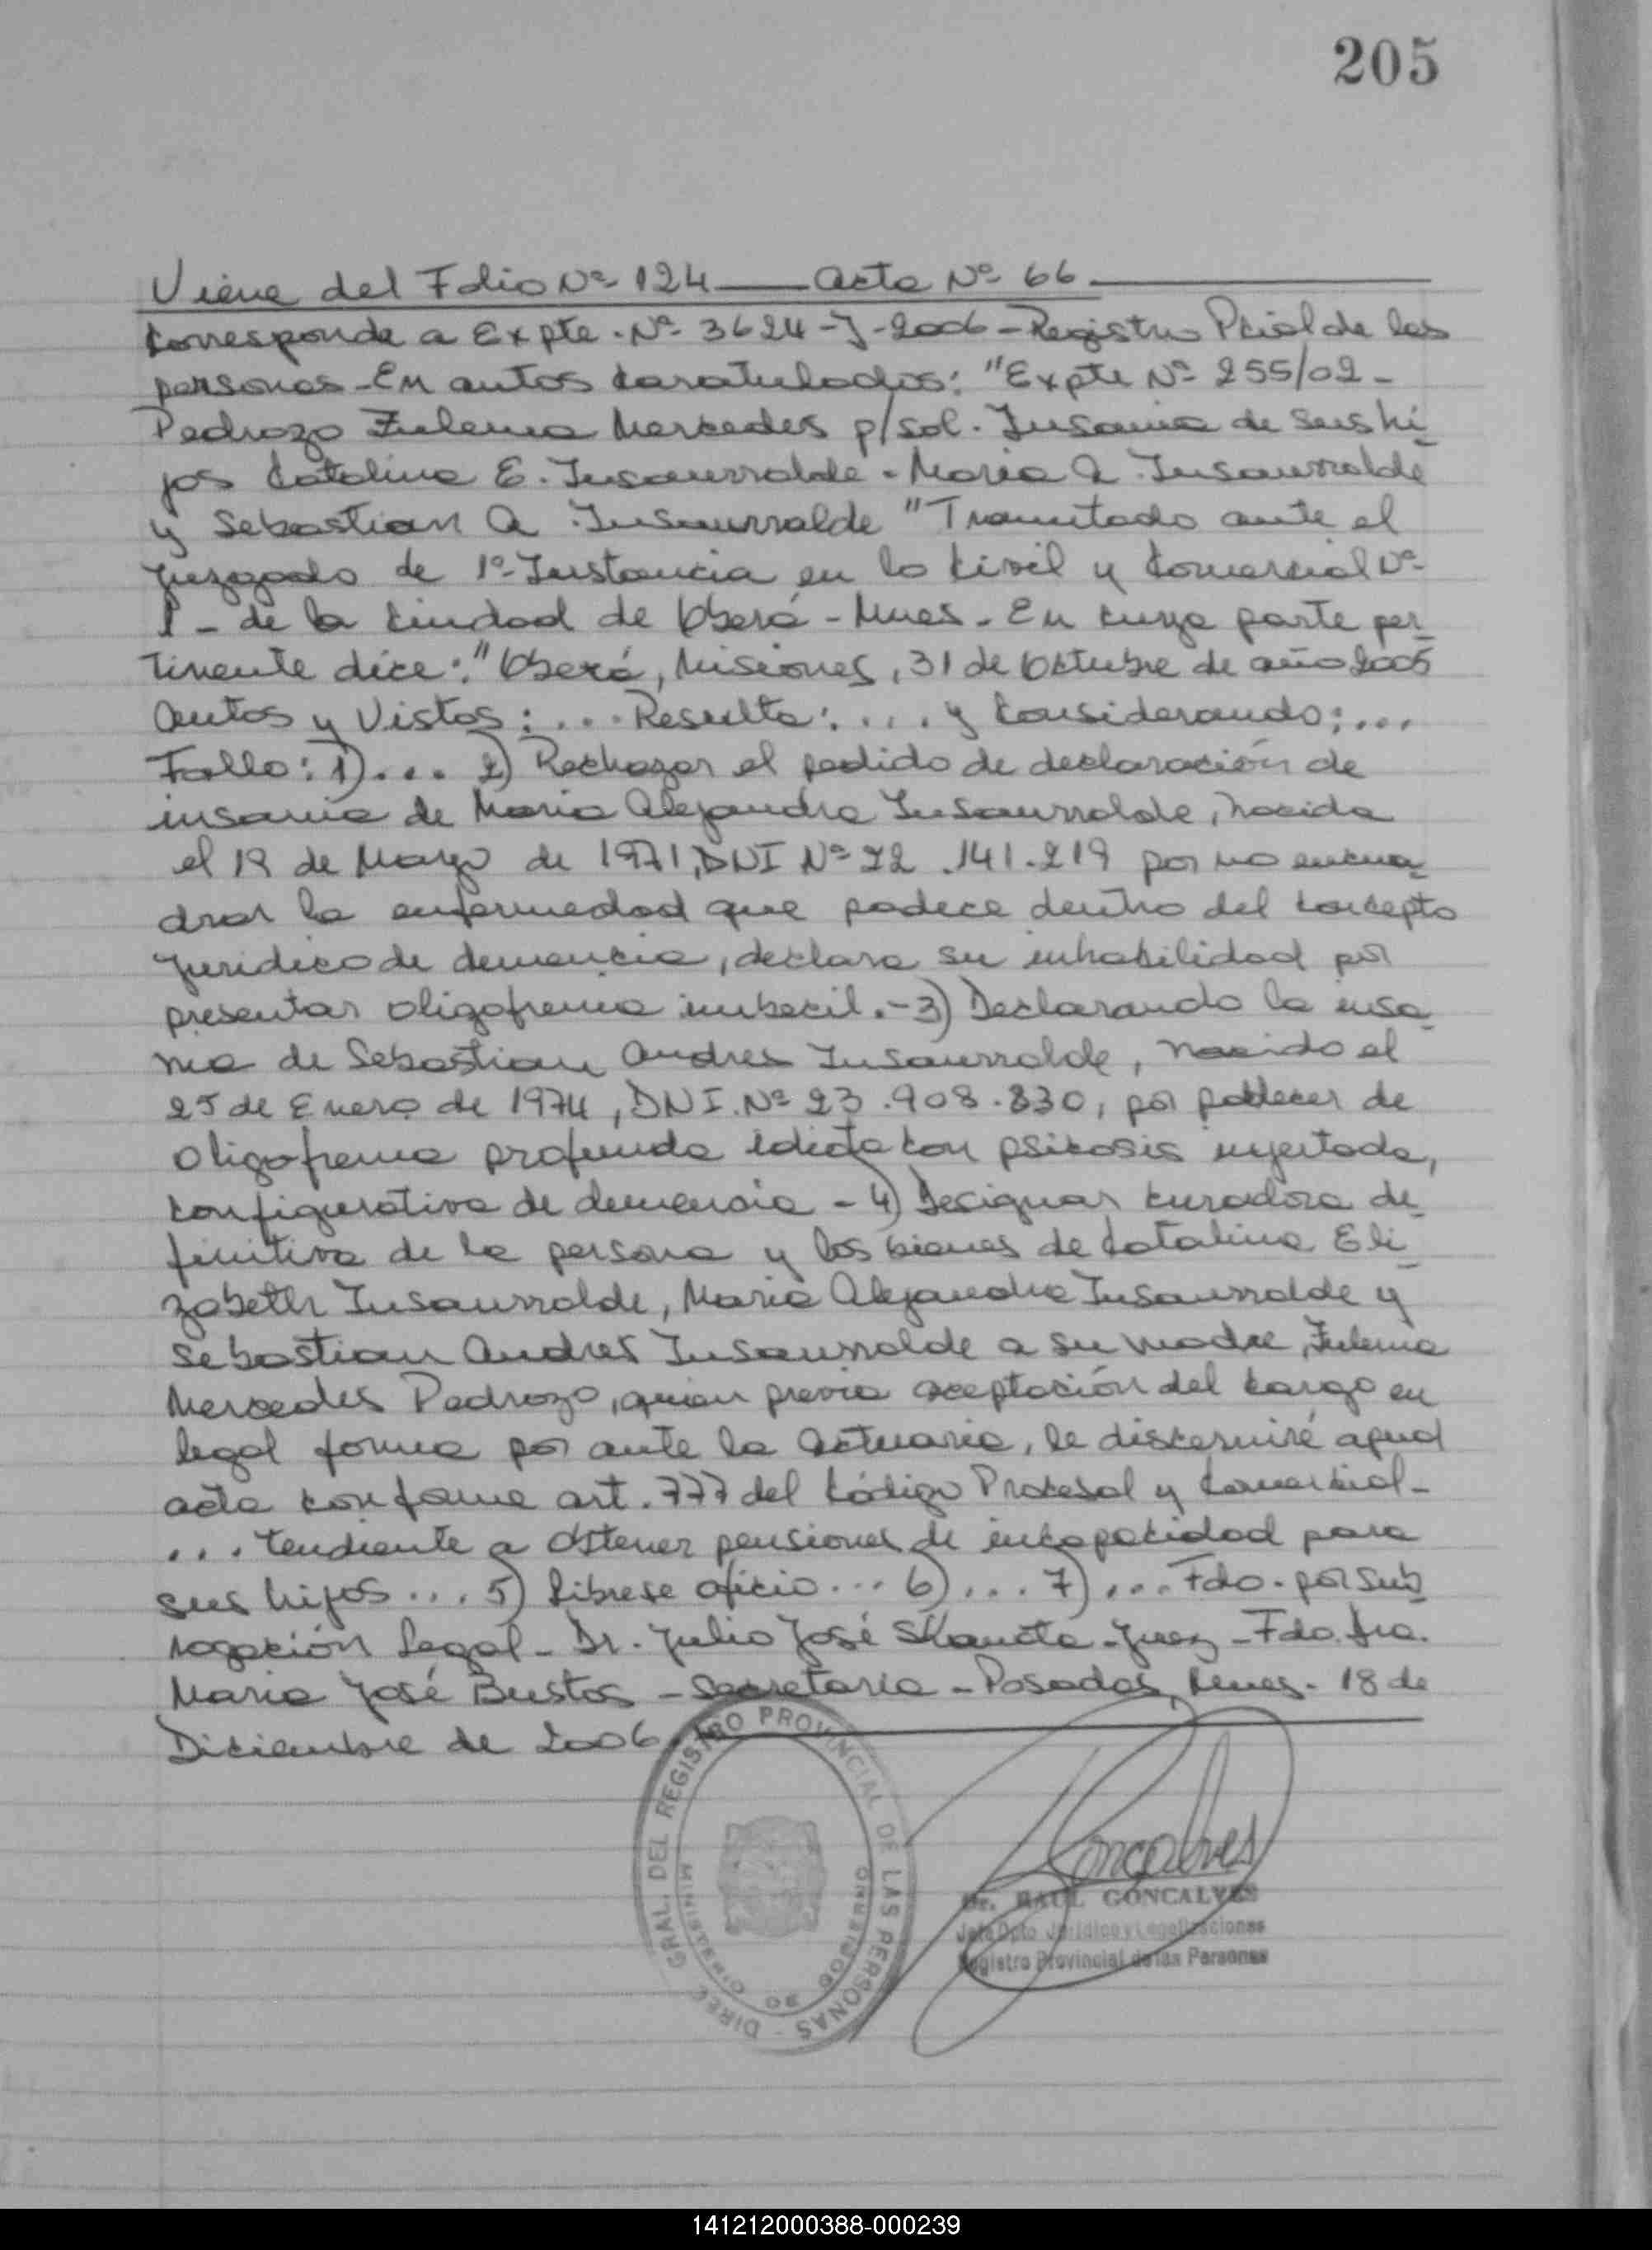 205
Viene del Folio Nº 124 — Acta Nº 66
Corresponde a Expte. Nº 3624-J-2006 - Registro Pcial de las
personas - En autos caratulados: "Expte Nº 255/02 -
Pedrozo Zulema Mercedes p/sol. Insania de sus hi-
jos Catalina E. Insaurralde - Maria A. Insaurralde
y Sebastian A. Insaurralde" Tramitado ante el
juzgado de 1º Instancia en lo Civil y Comercial Nº
1 - de la Ciudad de Oberá - Mnes. En cuya parte per-
tinente dice: "Oberá, Misiones, 31 de Octubre de año 2005
Autos y Vistos: ... Resulta: .... y Considerando: ...
Fallo: 1) ... 2) Rechazar el pedido de declaración de
insania de Maria Alejandra Insaurralde, nacida
el 19 de Marzo de 1971, DNI Nº 22.141.219 por no encua-
drar la enfermedad que padece dentro del concepto
juridico de demencia, declara su inhabilidad por
presentar oligofrenia imbecil. - 3) Declarando la insa-
nia de Sebastian Andres Insaurralde, nacido el
25 de Enero de 1974, DNI. Nº 23.908.830, por padecer de
oligofrenia profunda idiota con psicosis injertada,
configurativa de demencia - 4) Designar curadora de-
finitiva de la persona y los bienes de Catalina Eli-
zabeth Insaurralde, Maria Alejandra Insaurralde y
Sebastian Andres Insaurralde a su madre, Zulema
Mercedes Pedrozo, quien previa aceptación del cargo en
legal forma por ante la Actuaria, le discerniré apud
acta conforme art. 777 del Código Procesal y Comercial -
... tendiente a obtener pensiones de incapacidad para
sus hijos ... 5) Librese oficio ... 6) ... 7) ... Fdo. por sub-
rogación Legal - Dr. Julio José Skancta - Juez - Fdo. Dra.
Maria José Bustos - Secretaria - Posadas, Mnes. 18 de
Diciembre de 2006
DIREC. GRAL. DEL REGISTRO PROVINCIAL DE LAS PERSONAS -
MINISTERIO DE GOBIERNO
Goncalves
Dr. RAUL GONCALVES
Jefe Dpto Jurídico y Legalizaciones
Registro Provincial de las Personas
141212000388-000239